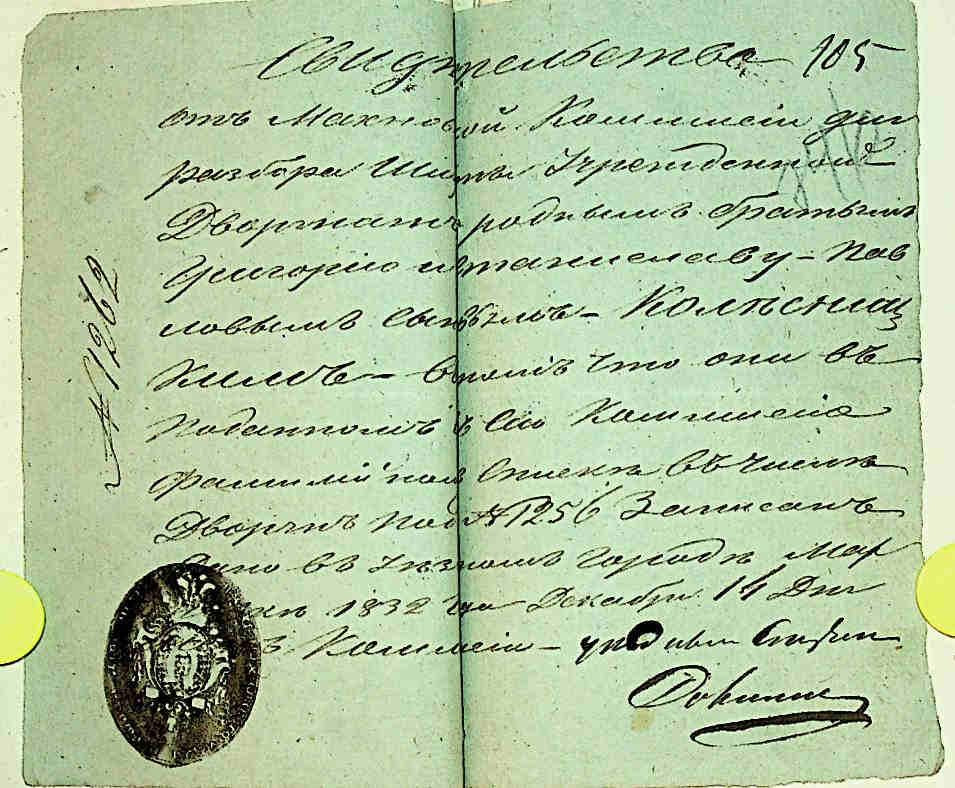 Свидѣтельство 105
отъ Махновской Коммисіи для
разбора Шляхты Учрежденной
Дворянамъ роднымъ братьямъ
Григорію и Станиславу - Пав
ловымъ сыновьямъ - Колѣсниц
кимъ - въ томъ что они въ
поданномъ въ Сію Коммисію
фамилійномъ Спискѣ въ числѣ
Дворянъ под № 1256 Записаны
Дано въ Уѣзномъ городѣ Мах
1832 го Декабря 14 Дня
Коммисіи -
№ 1262